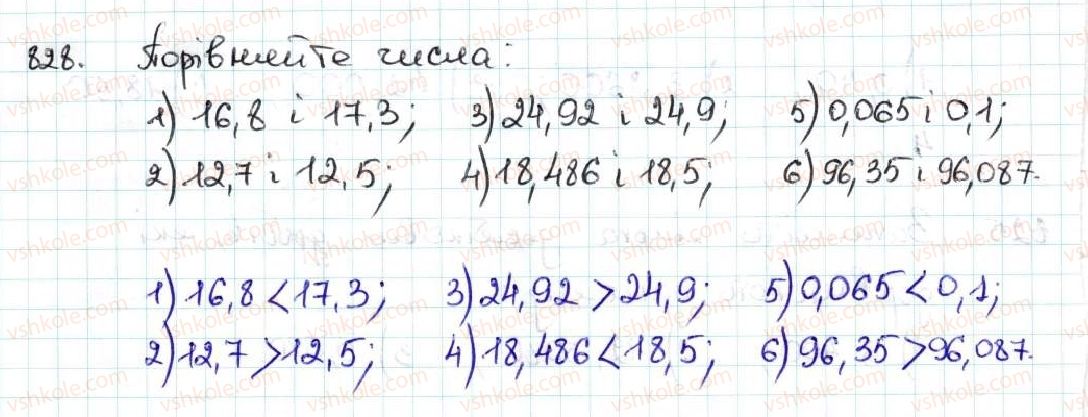 828. Порівняйте числа:
1) 16,8 і 17,3; 3) 24,92 і 24,9; 5) 0,065 і 0,1;
2) 12,7 і 12,5; 4) 18,486 і 18,5; 6) 96,35 і 96,087.
1) 16,8 < 17,3; 3) 24,92 > 24,9; 5) 0,065 < 0,1;
2) 12,7 > 12,5; 4) 18,486 < 18,5; 6) 96,35 > 96,087.